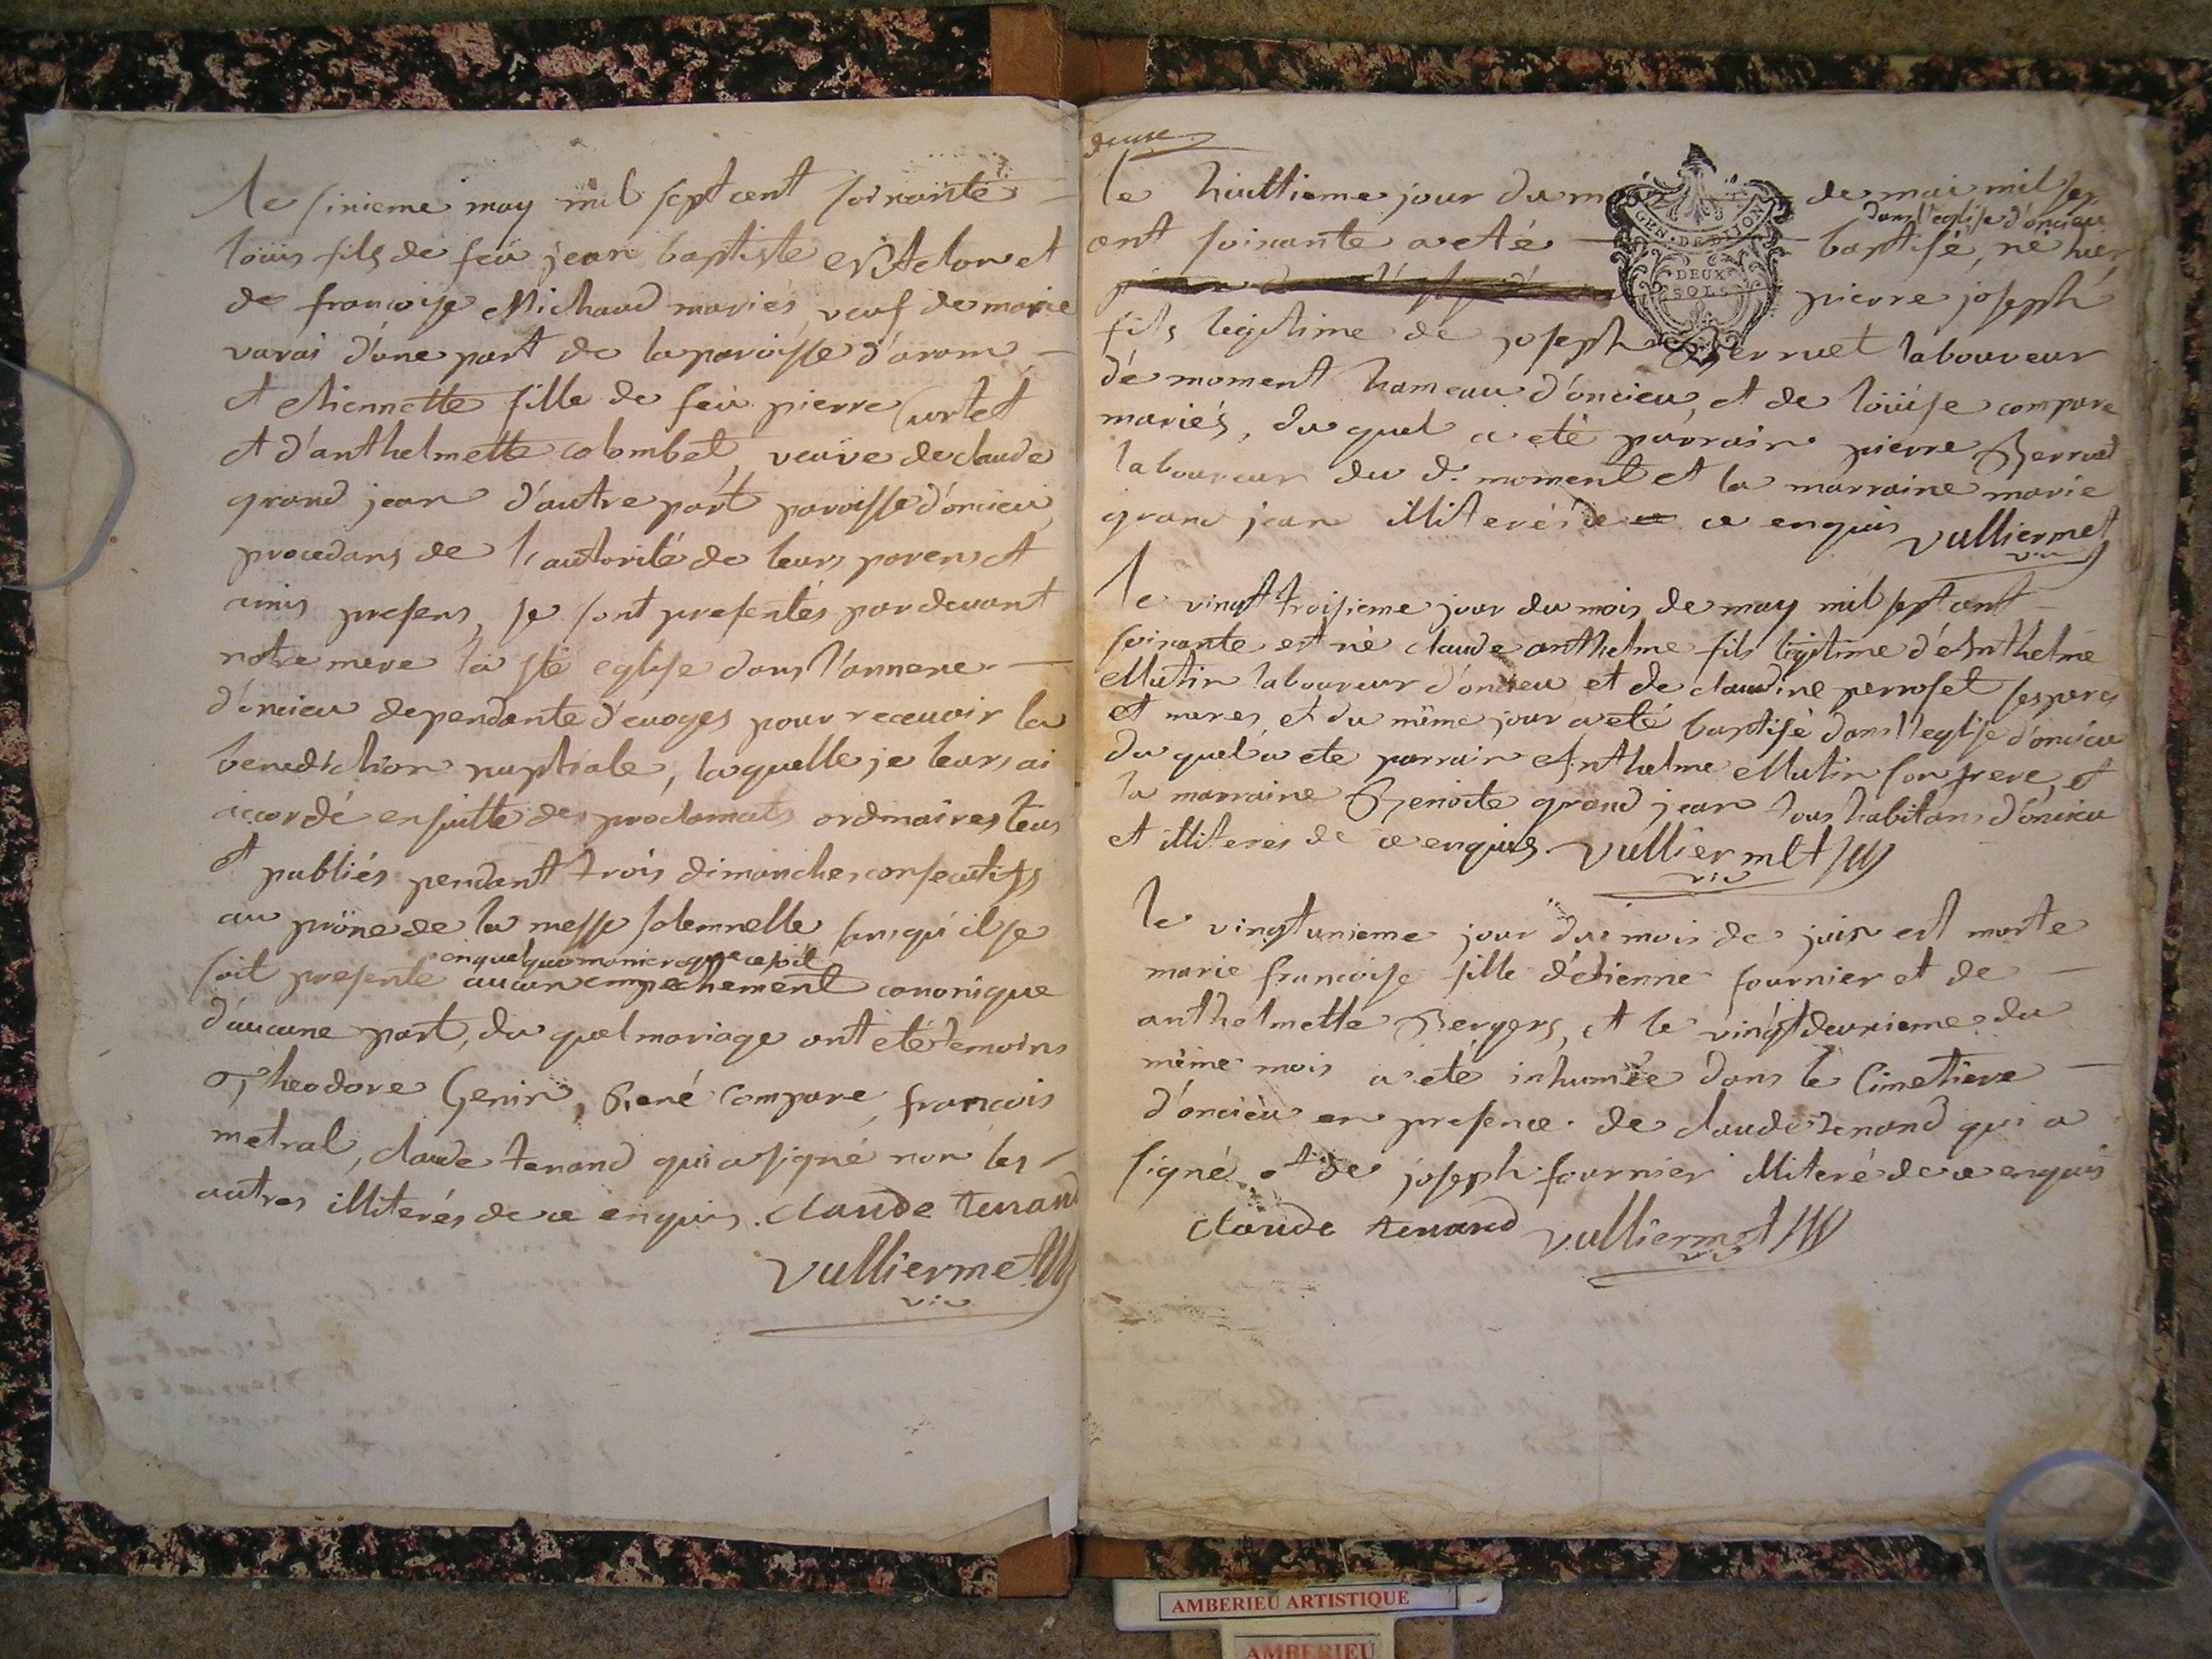 Le sixieme may mil sept cent soixante
loüis fils de feu jean baptiste
de francoise Michaud mariés, veuf de marie
varai d'une part de la paroisse d'aram
et etiennette fille de feu pierre Curtet
et d'anthelmette colombet, veuve de claude
grand jean d'autre part paroisse d'oncieu,
procedans de l'autorité de leurs parens et
amis presens, se sont presentés pardevant
notre mere la ste eglise dans l'annexe
d'oncieu dependante d'evoges pour recevoir la
benediction nuptiale, laquelle je leurs ai
accordé ensuitte des proclamats ordinaires leus
et publiés pendant trois dimanches consecutifs
au prône de la messe solemnelle sans qu'il se
en quelque maniere que ce soit
soit presenté aucun empechement canonique
d'aucune part, du quel mariage ont eté temoins
Theodore Genin, René Compare, francois
metral, claude tenand qui a signé non les
autres illiterés de ce enquis. claude tenand
vulliermet
vic
deux
le huittieme jour du mois de mai mil sep
dans l'eglise d'oncieu
cent soixante a eté baptisé, né hier
pierre joseph
fils legitime de joseph Berruet laboureur
de moment hameau d'oncieu, et de loüise compare
mariés, du quel a eté parrain pierre Berrued
laboureur du d. moment et la marraine marie
grand jean illiterés de ce enquis vulliermet
vic
Le vingt troisieme jour du mois de may mil sept cent
soixante est né claude anthelme fils legitime d'Anthelme
Mutin laboureur d'oncieu et de claudine perroset ses peres
et meres, et du même jour a eté baptisé dans l'eglise d'oncieu
du quel a ete parrain Anthelme Mutin son frere, et
la marraine Benoite grand jean tous habitans d'oncieu
et illiteres de ce enquis. vulliermet
vic
le vingtunieme jour du mois de juin est morte
marie francoise fille d'etienne fournier et de
anthelmette Bergers, et le vingtdeuxieme du
même mois a eté inhumée dans le Cimetiere
d'oncieu en presence de claude tenand qui a
signé et de joseph fournier illiteré de ce enquis
claude tenand vulliermet
vic
GEN. DE DIJON
DEUX
SOLS
AMBERIEU ARTISTIQUE
AMBERIEU